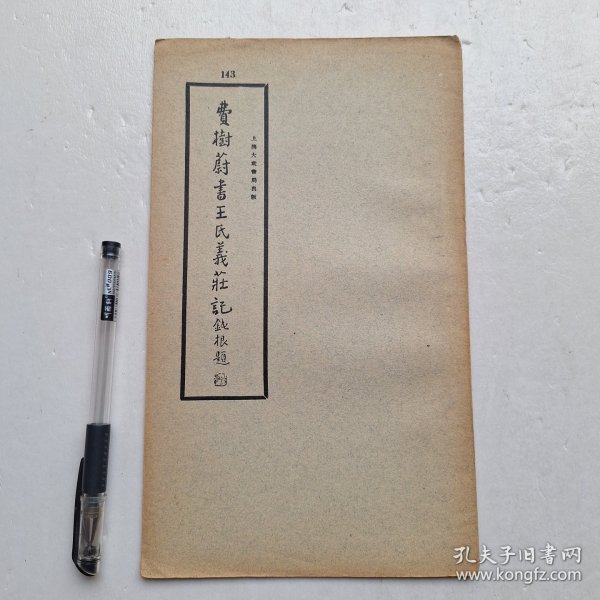 143
上海大眾書局出版
費樹蔚書王氏義莊記
鈍根題
孔夫子旧书网
www.kongfz.com